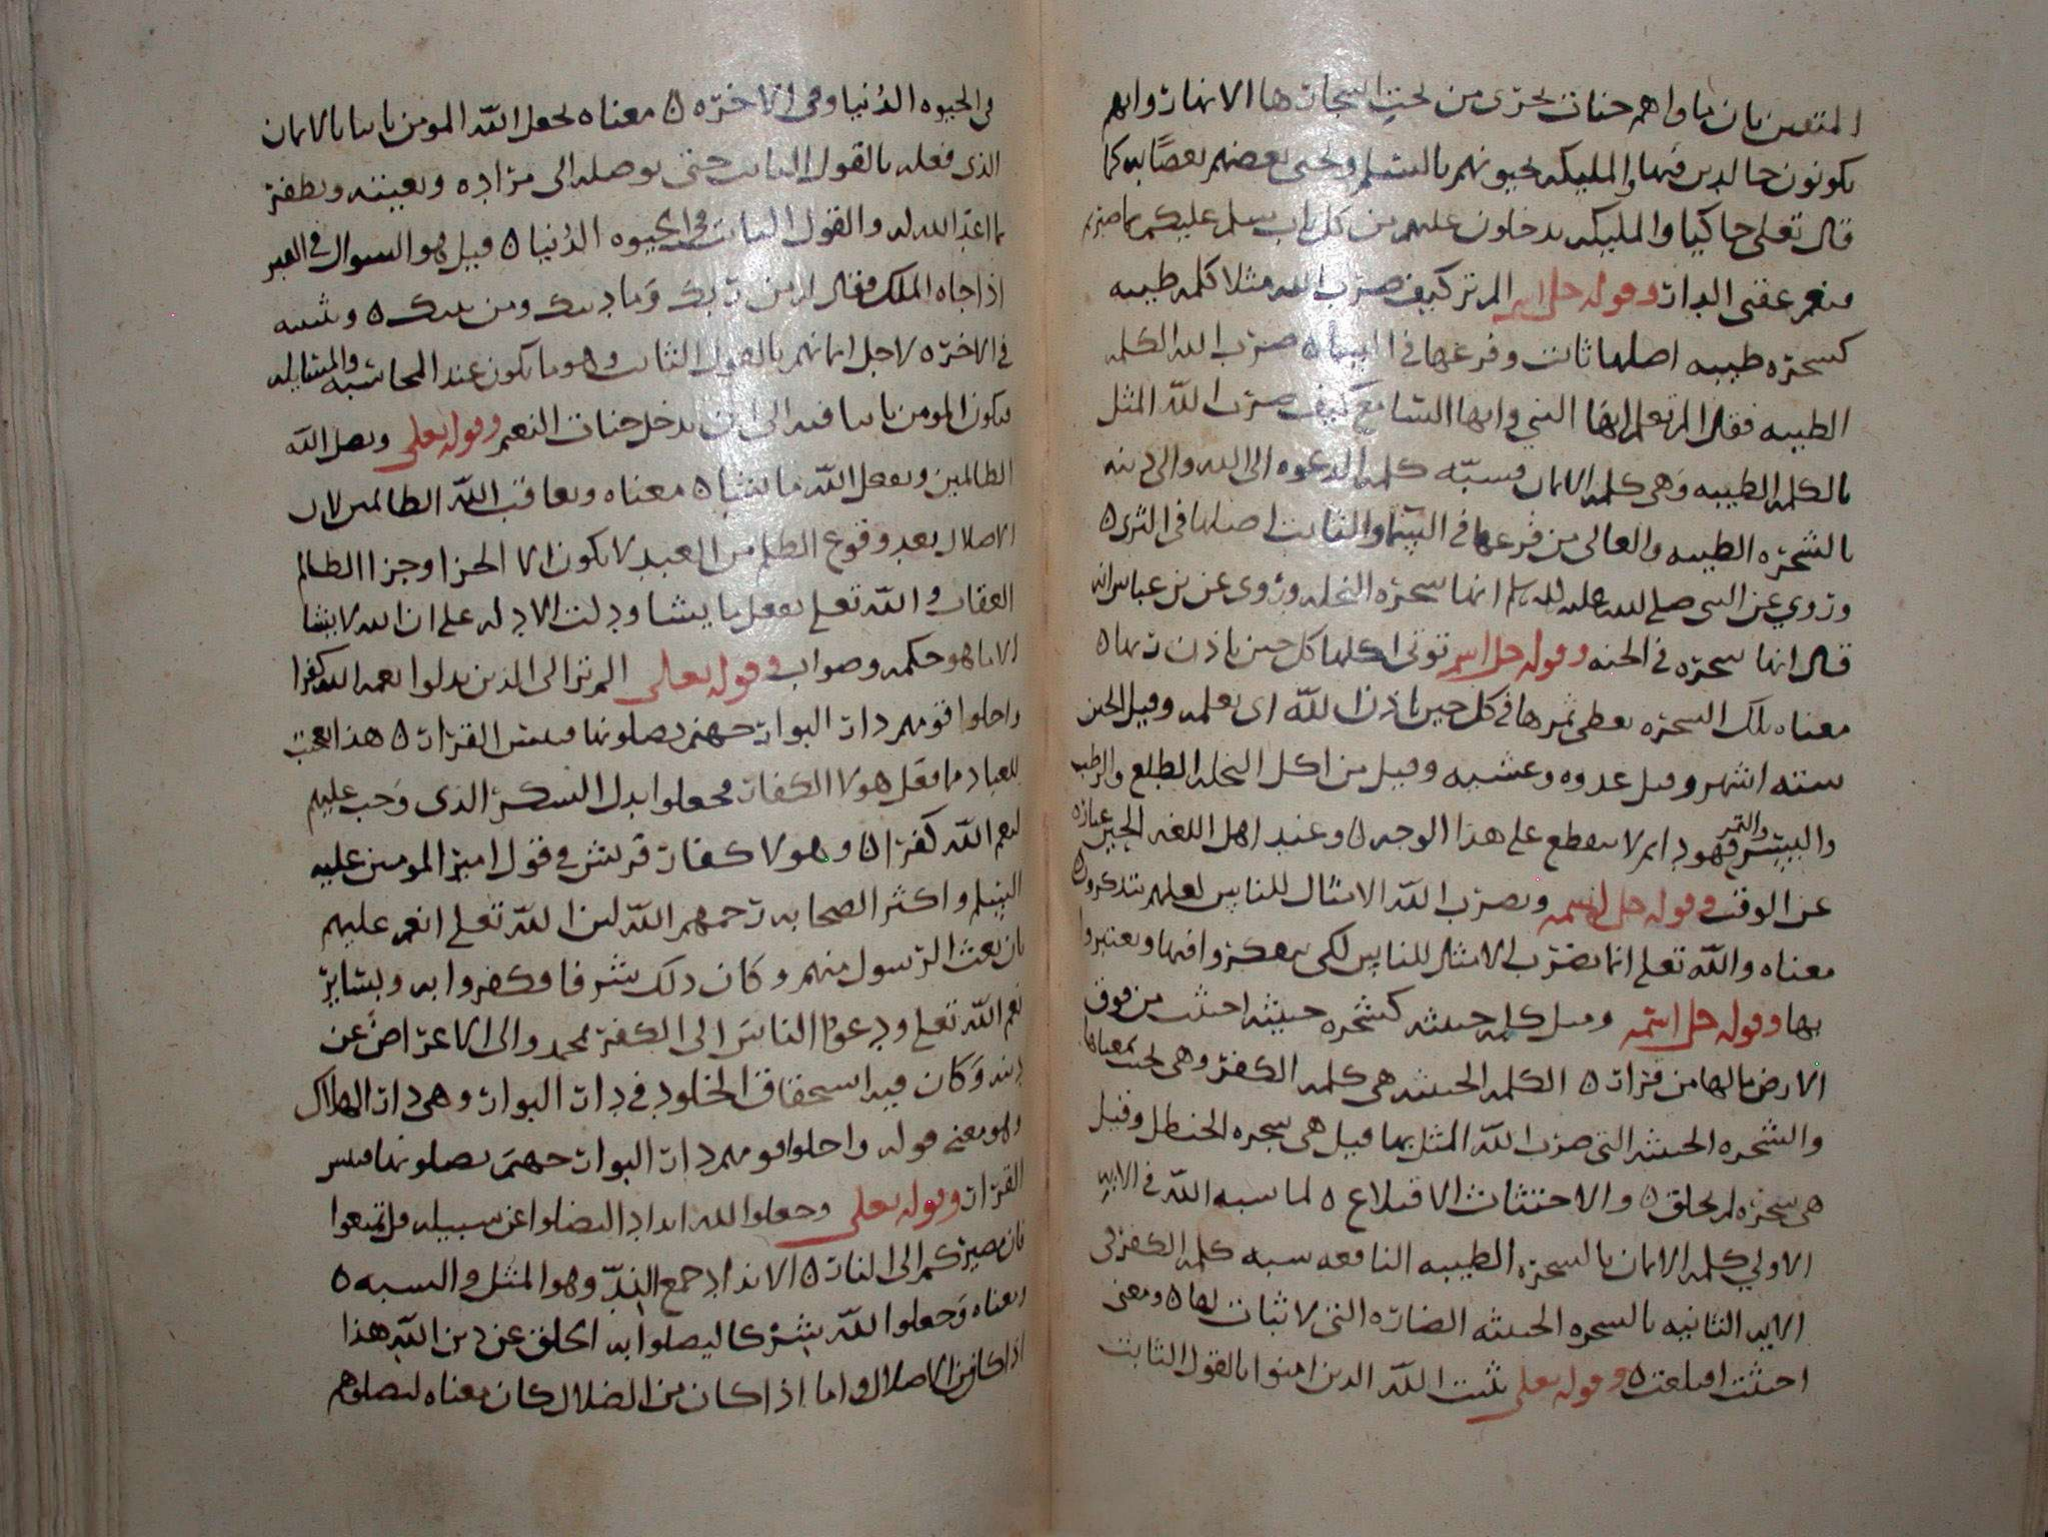 المتقين بان ثوابهم جنات تجري من تحت اشجارها الانهار وانهم
يكونون خالدين فيها والمليكه يحيونهم بالتسلم ويحيي بعضهم بعضًا به كما
قال تعلى حاكيا والمليكه يدخلون عليهم من كل باب سلم عليكم بما صبرتم
فنعم عقبى الدار وقوله جل اسمه الم تر كيف ضرب الله مثلا كلمه طيبه
كشجره طيبه اصلها ثابت وفرعها في السما ه ضرب الله الكلمه
الطيبه فقال الم تعلم ايها النبي وايها السامع كيف ضرب الله المثل
بالكلمه الطيبه وهي كلمه الايمان فشبّه كلمه الدعوه الى الله والى دينه
بالشجره الطيبه والعالى من فرعها في السما والثابت اصلها في الثرى ه
وروي عن النبى صلى الله عليه وسلم انها شجره النخله وروى عن بن عباس انه
قال انها شجره في الجنه وقوله جل اسمه توتى اكلها كل حين باذن ربها ه
معناه تلك الشجره يعطى ثمرها في كل حين باذن الله اى بعلمه وقيل الحين
سته اشهر وقيل غدوه وعشيه وقيل من اكل النخله الطلع والرطب
والبسر والتمر فهو دايم لا ينقطع على هذا الوجه ه وعند اهل اللغه الحين عباره
عن الوقت وقوله جل اسمه ويضرب الله الامثال للناس لعلهم يتذكرون ه
معناه والله تعلى انما يضرب الامثال للناس لكى يتفكروا فيها ويعتبروا
بها وقوله جل اسمه ومثل كلمه خبيثه كشجره خبيثه اجتثت من فوق
الارض ما لها من قرار ه الكلمه الخبيثه هى كلمه الكفر وهى تحت معناها
والشجره الخبيثه التى ضرب الله المثل بها قيل هى شجره الحنظل وقيل
هى شجره لم تخلق ه والاجتثاث الاقتلاع ه لما شبه الله في الايه
الاولي كلمه الايمان بالشجره الطيبه النافعه شبه كلمه الكفر في
الايه الثانيه بالشجره الخبيثه الضاره التى لا ثبات لها ه ومعنى
اجتثت اقتلعت ه وقوله تعلى يثبت الله الذين امنوا بالقول الثابت
في الحيوه الدُنيا وفى الاخره ه معناه يجعل الله المومن ثابتا بالايمان
الذى فعله بالقول الثابت حتى يوصله الى مراده وبغيته ويظفر
بما اعدّ الله له والقول الثابت في الحيوه الدُنيا ه قيل هو السوال في القبر
اذا جاه الملك فقال له من ربك وَما دينك ومن نبيك ه ويثبته
في الاخره لاجل ايمانهم بالقول الثابت وهو ما يكون عند المحاسبه والمسايله
فيكون المومن ثابتا فيه الى ان يدخل جنات النعيم وقوله تعلى ويضل الله
الظالمين ويفعل الله ما يشا ه معناه ويعاقب الله الظالمين لان
الاضلال بعد وقوع الظلم من العبد لا يكون الا الجزا وجزا الظالم
العقاب والله تعلى يفعل ما يشا ودلت الادله على ان الله لا يشا
الا ما هو حكمه وصواب وقوله تعالى الم تر الى الذين بدلوا نعمه الله كفرا
واحلوا قومهم دار البوار جهنم يصلونها فبيس القرار ه هذا تعجب
للعباد مما فعل هولا الكفار فجعلوا بدل الشكر الذى وَجب عليهم
لنعم الله كفرا ه وهولا كفار قريش في قول امير المومنين عليه
السلم واكثر الصحابه رحمهم الله لان الله تعلى انعم عليهم
بان بعث الرسول منهم وكان ذلك شرفا فكفروا به وبساير
نعم الله تعلى ودعوا الناسَ الى الكفر بمحمد والى الاعراض عن
دينه وَكان فيه استحقاق الخلود في دار البوار وهى دار الهلاك
وهو معنى قوله واحلوا قومهم دار البوار جهنم يصلونها فبيس
القرار وقوله تعلى وجعلوا لله اندادا ليضلوا عن سبيله قل تمتعوا
فان مصيركم الى النار ه الانداد جمع الندّ وهو المثل والشبه ه
ومعناه وَجعلوا لله شركا ليضلوا به الخلق عن دين الله هذا
اذا كان من الاضلال واما اذا كان من الضلال كان معناه ليضلوهم